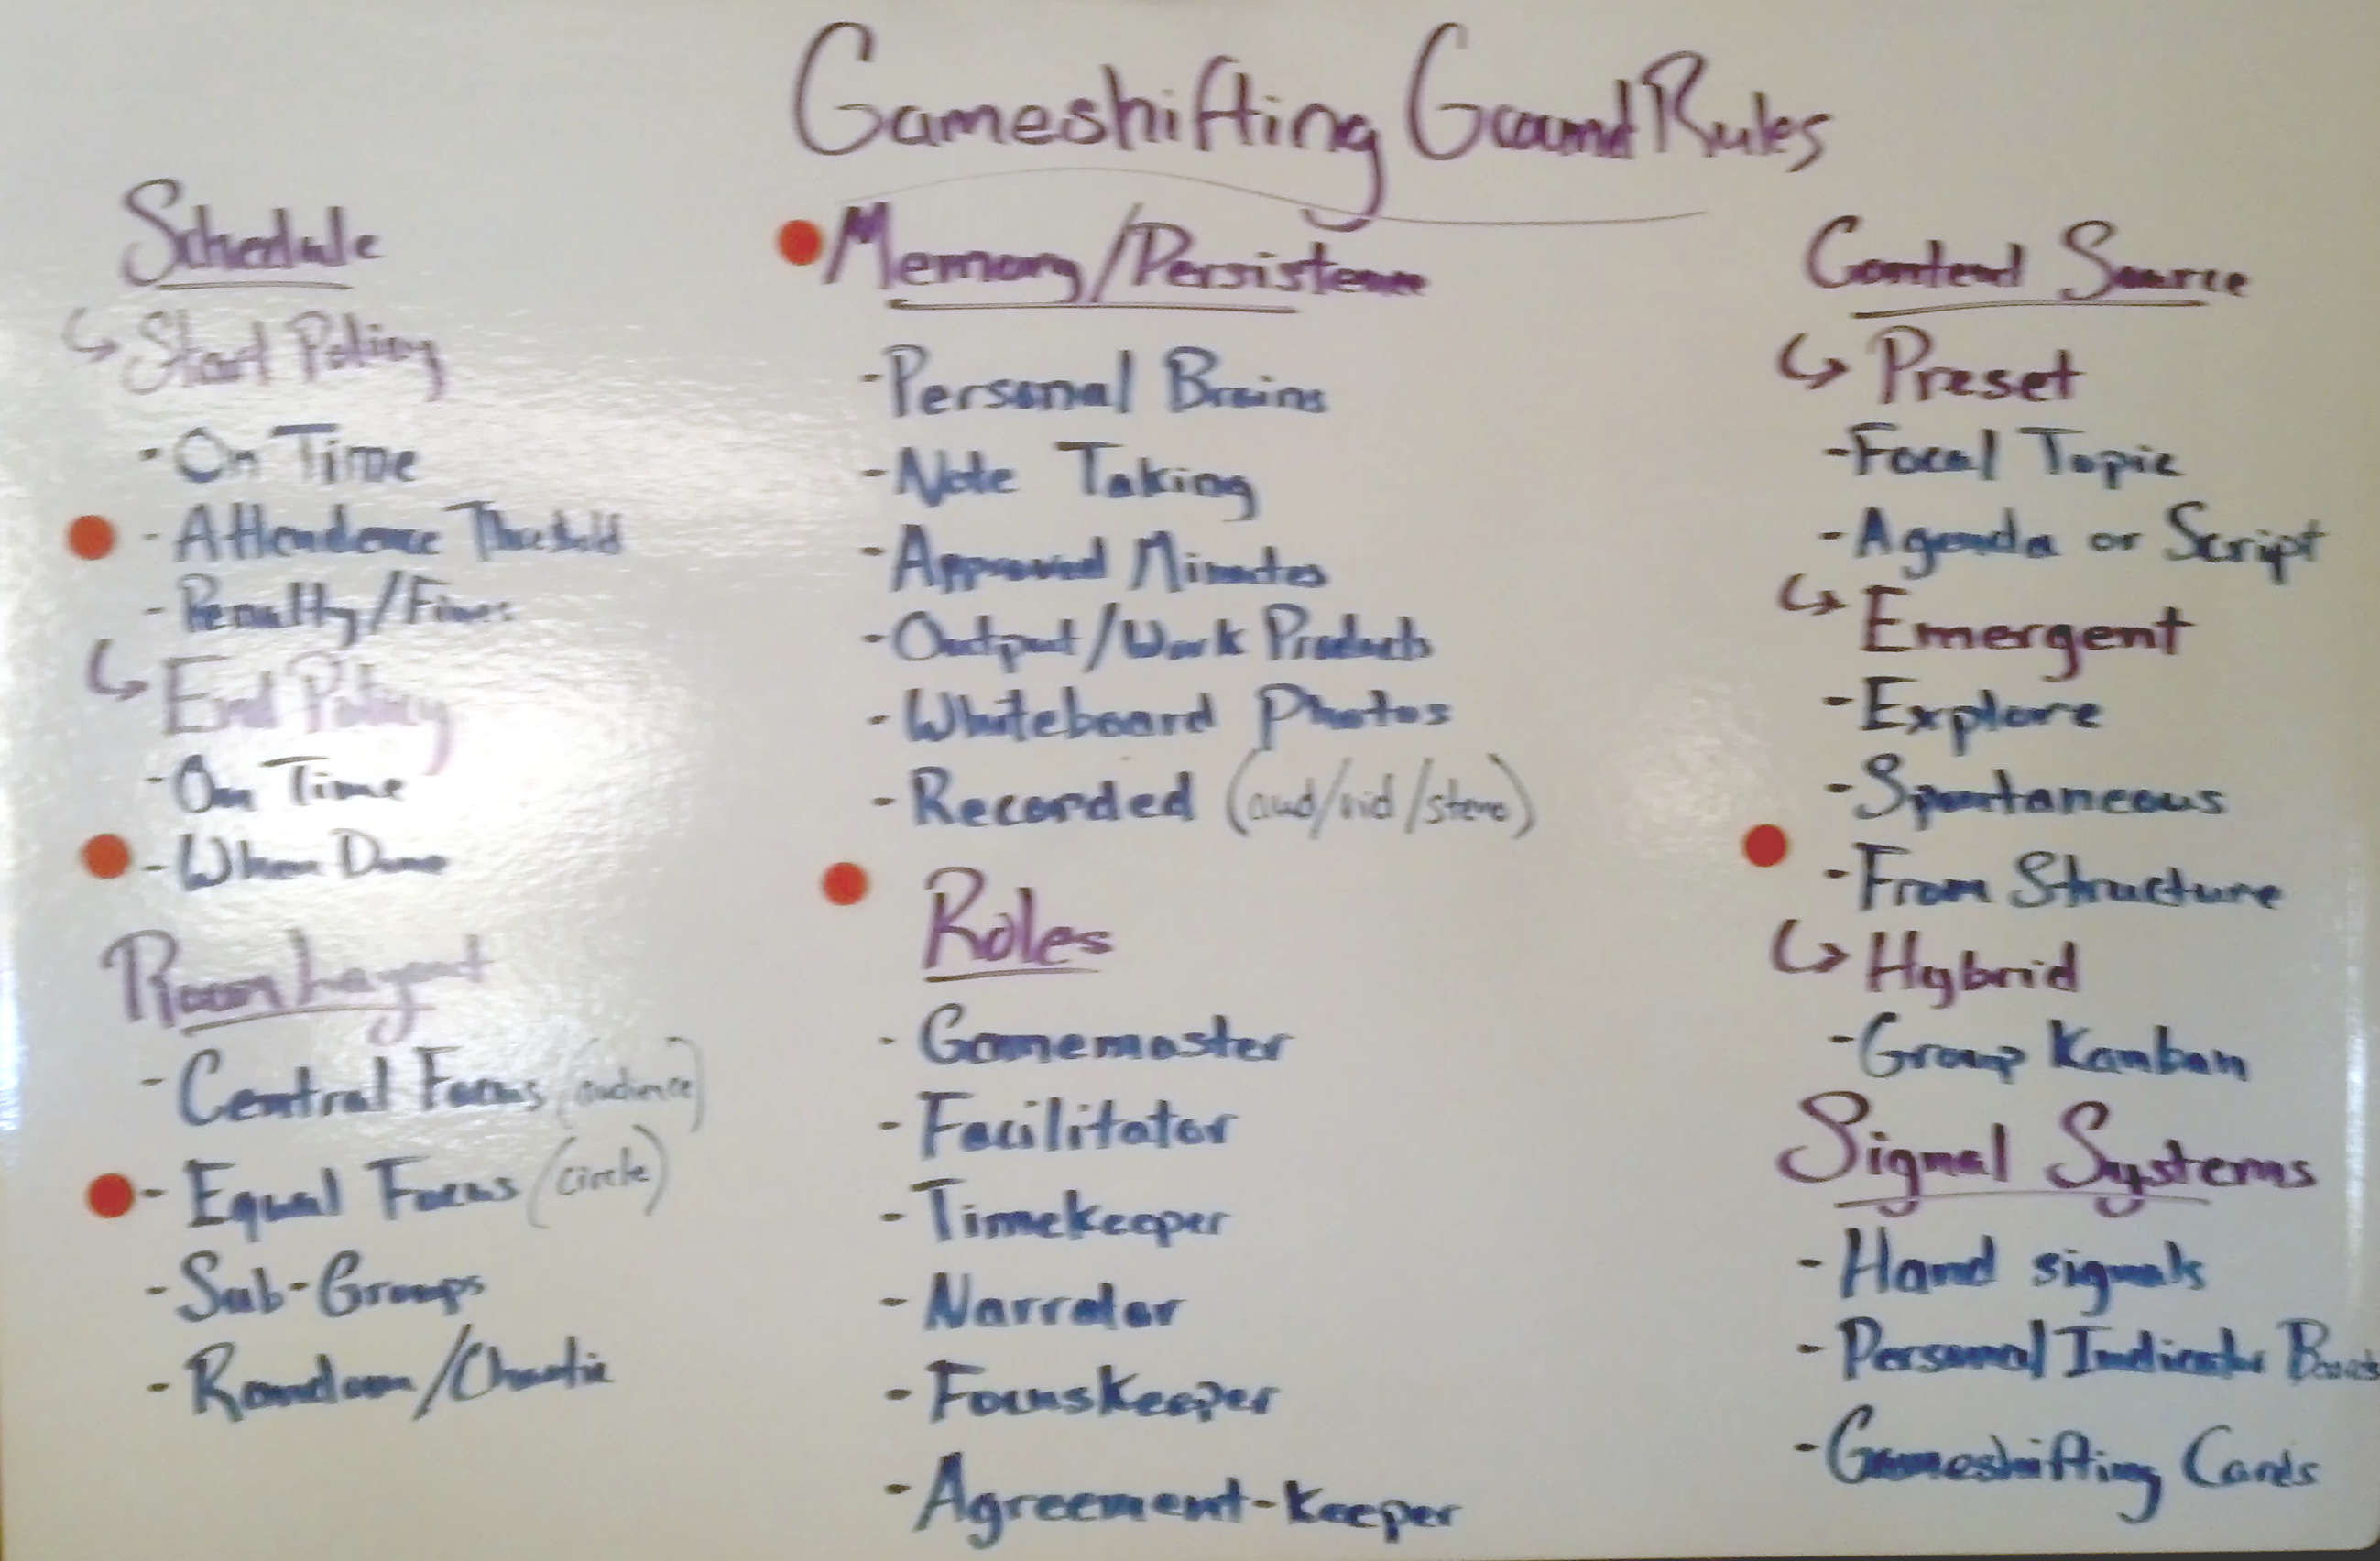 Gameshifting Ground Rules
Schedule
↳ Start Policy
- On Time
- Attendence Threshold
- Penalty/Fines
↳ End Policy
- On Time
- When Done
Room Layout
- Central Focus (audience)
- Equal Focus (circle)
- Sub-Groups
- Random/Chaotic
Memory/Persistence
- Personal Brains
- Note Taking
- Approved Minutes
- Output/Work Products
- Whiteboard Photos
- Recorded (aud/vid/steno)
Roles
- Gamemaster
- Facilitator
- Timekeeper
- Narrator
- Focuskeeper
- Agreement-Keeper
Content Source
↳ Preset
- Focal Topic
- Agenda or Script
↳ Emergent
- Explore
- Spontaneous
- From Structure
↳ Hybrid
- Group Kanban
Signal Systems
- Hand signals
- Personal Indicator Boards
- Gameshifting Cards